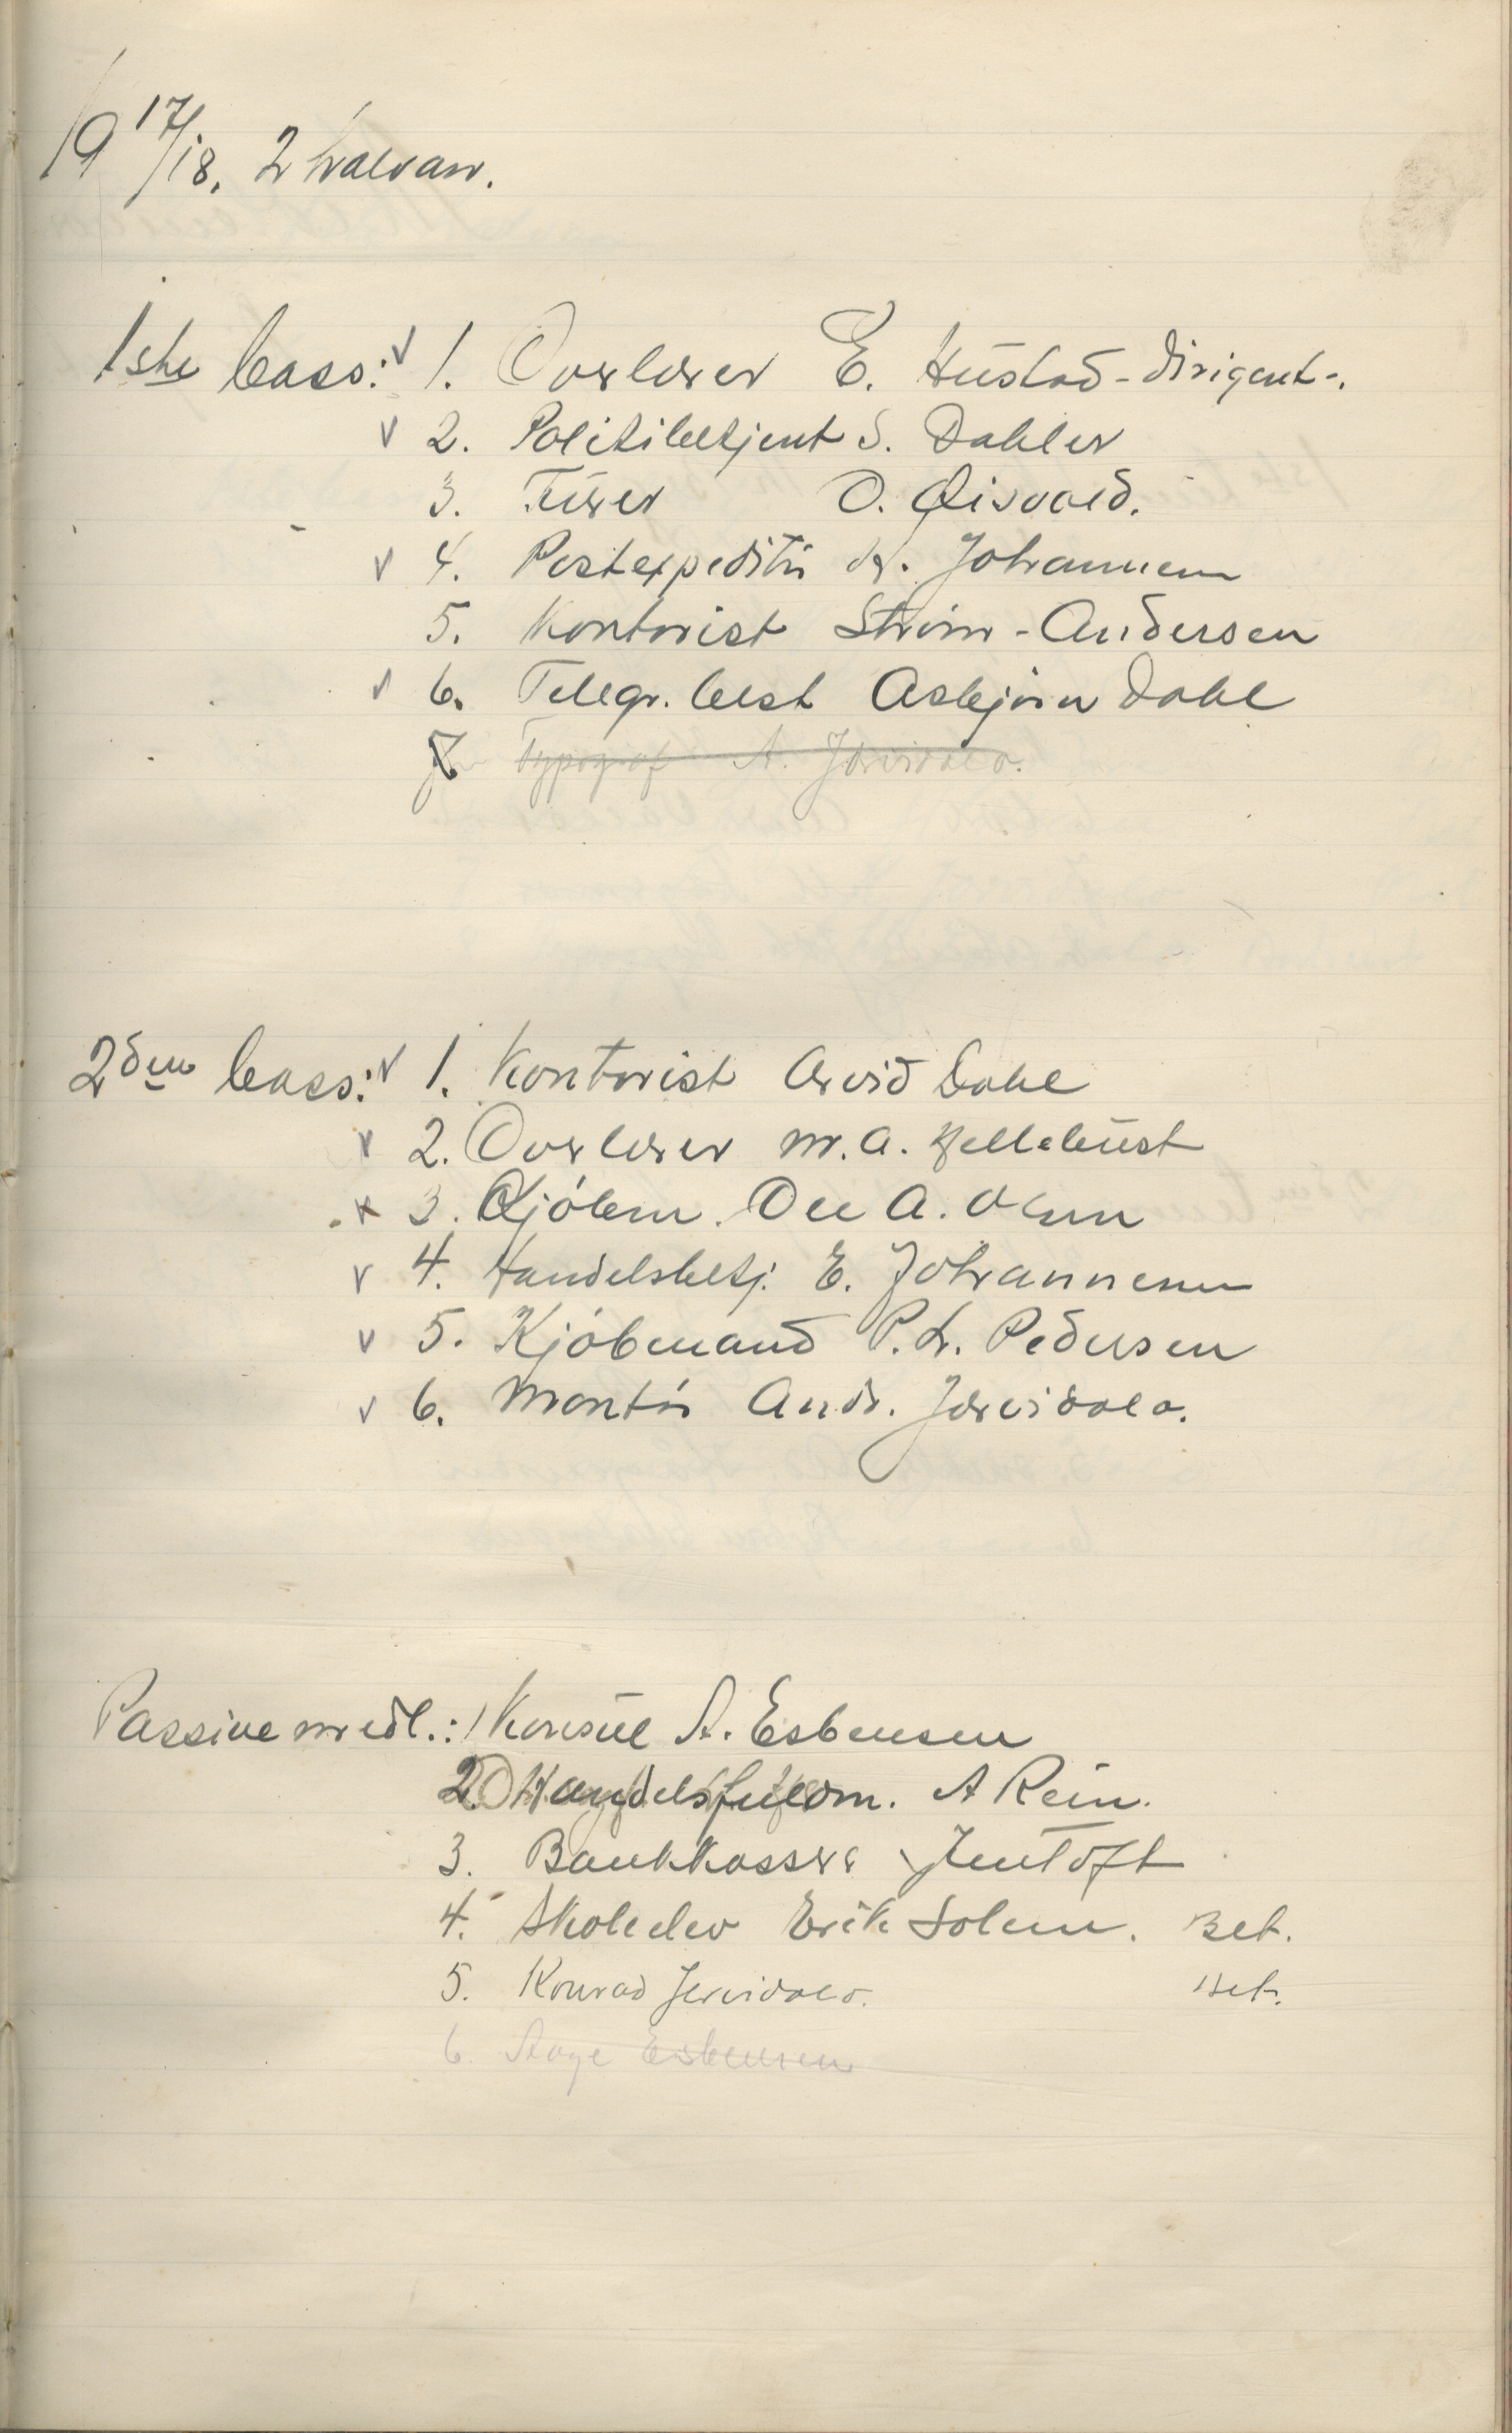 19 17/18. 2 halvaar.
1ste bass: v 1. Overlærer E. Hustad - dirigent -.
v 2. Politibetjent S. Dahler
3. Furer O. Øisvold.
v 4. Postexpeditør Kr. Johannessen
5. Kontorist Strøm - Andersen
v 6. Telegr. best Asbjørn Dahl
7. Typograf A. Jærvidalo.
2den bass: v 1. Kontorist Arvid Dahl
v 2. Overlærer M. A. Hellebust
v 3. Kjøbm. Ole A. Olsen
v 4. Handelsbetj. E. Johannessen
v 5. Kjøbmand P. L. Pedersen
v 6. Montør Andr. Jærvidalo.
Passive medl.: 1 Konsul A. Esbensen
2. Handelsfuldm. A Rein.
3. Bankkasser Juntoft
4. Skoleelev Erik Solem. Bet.
5. Konrad Jervidalo. Bet.
6. Aage Esbensen